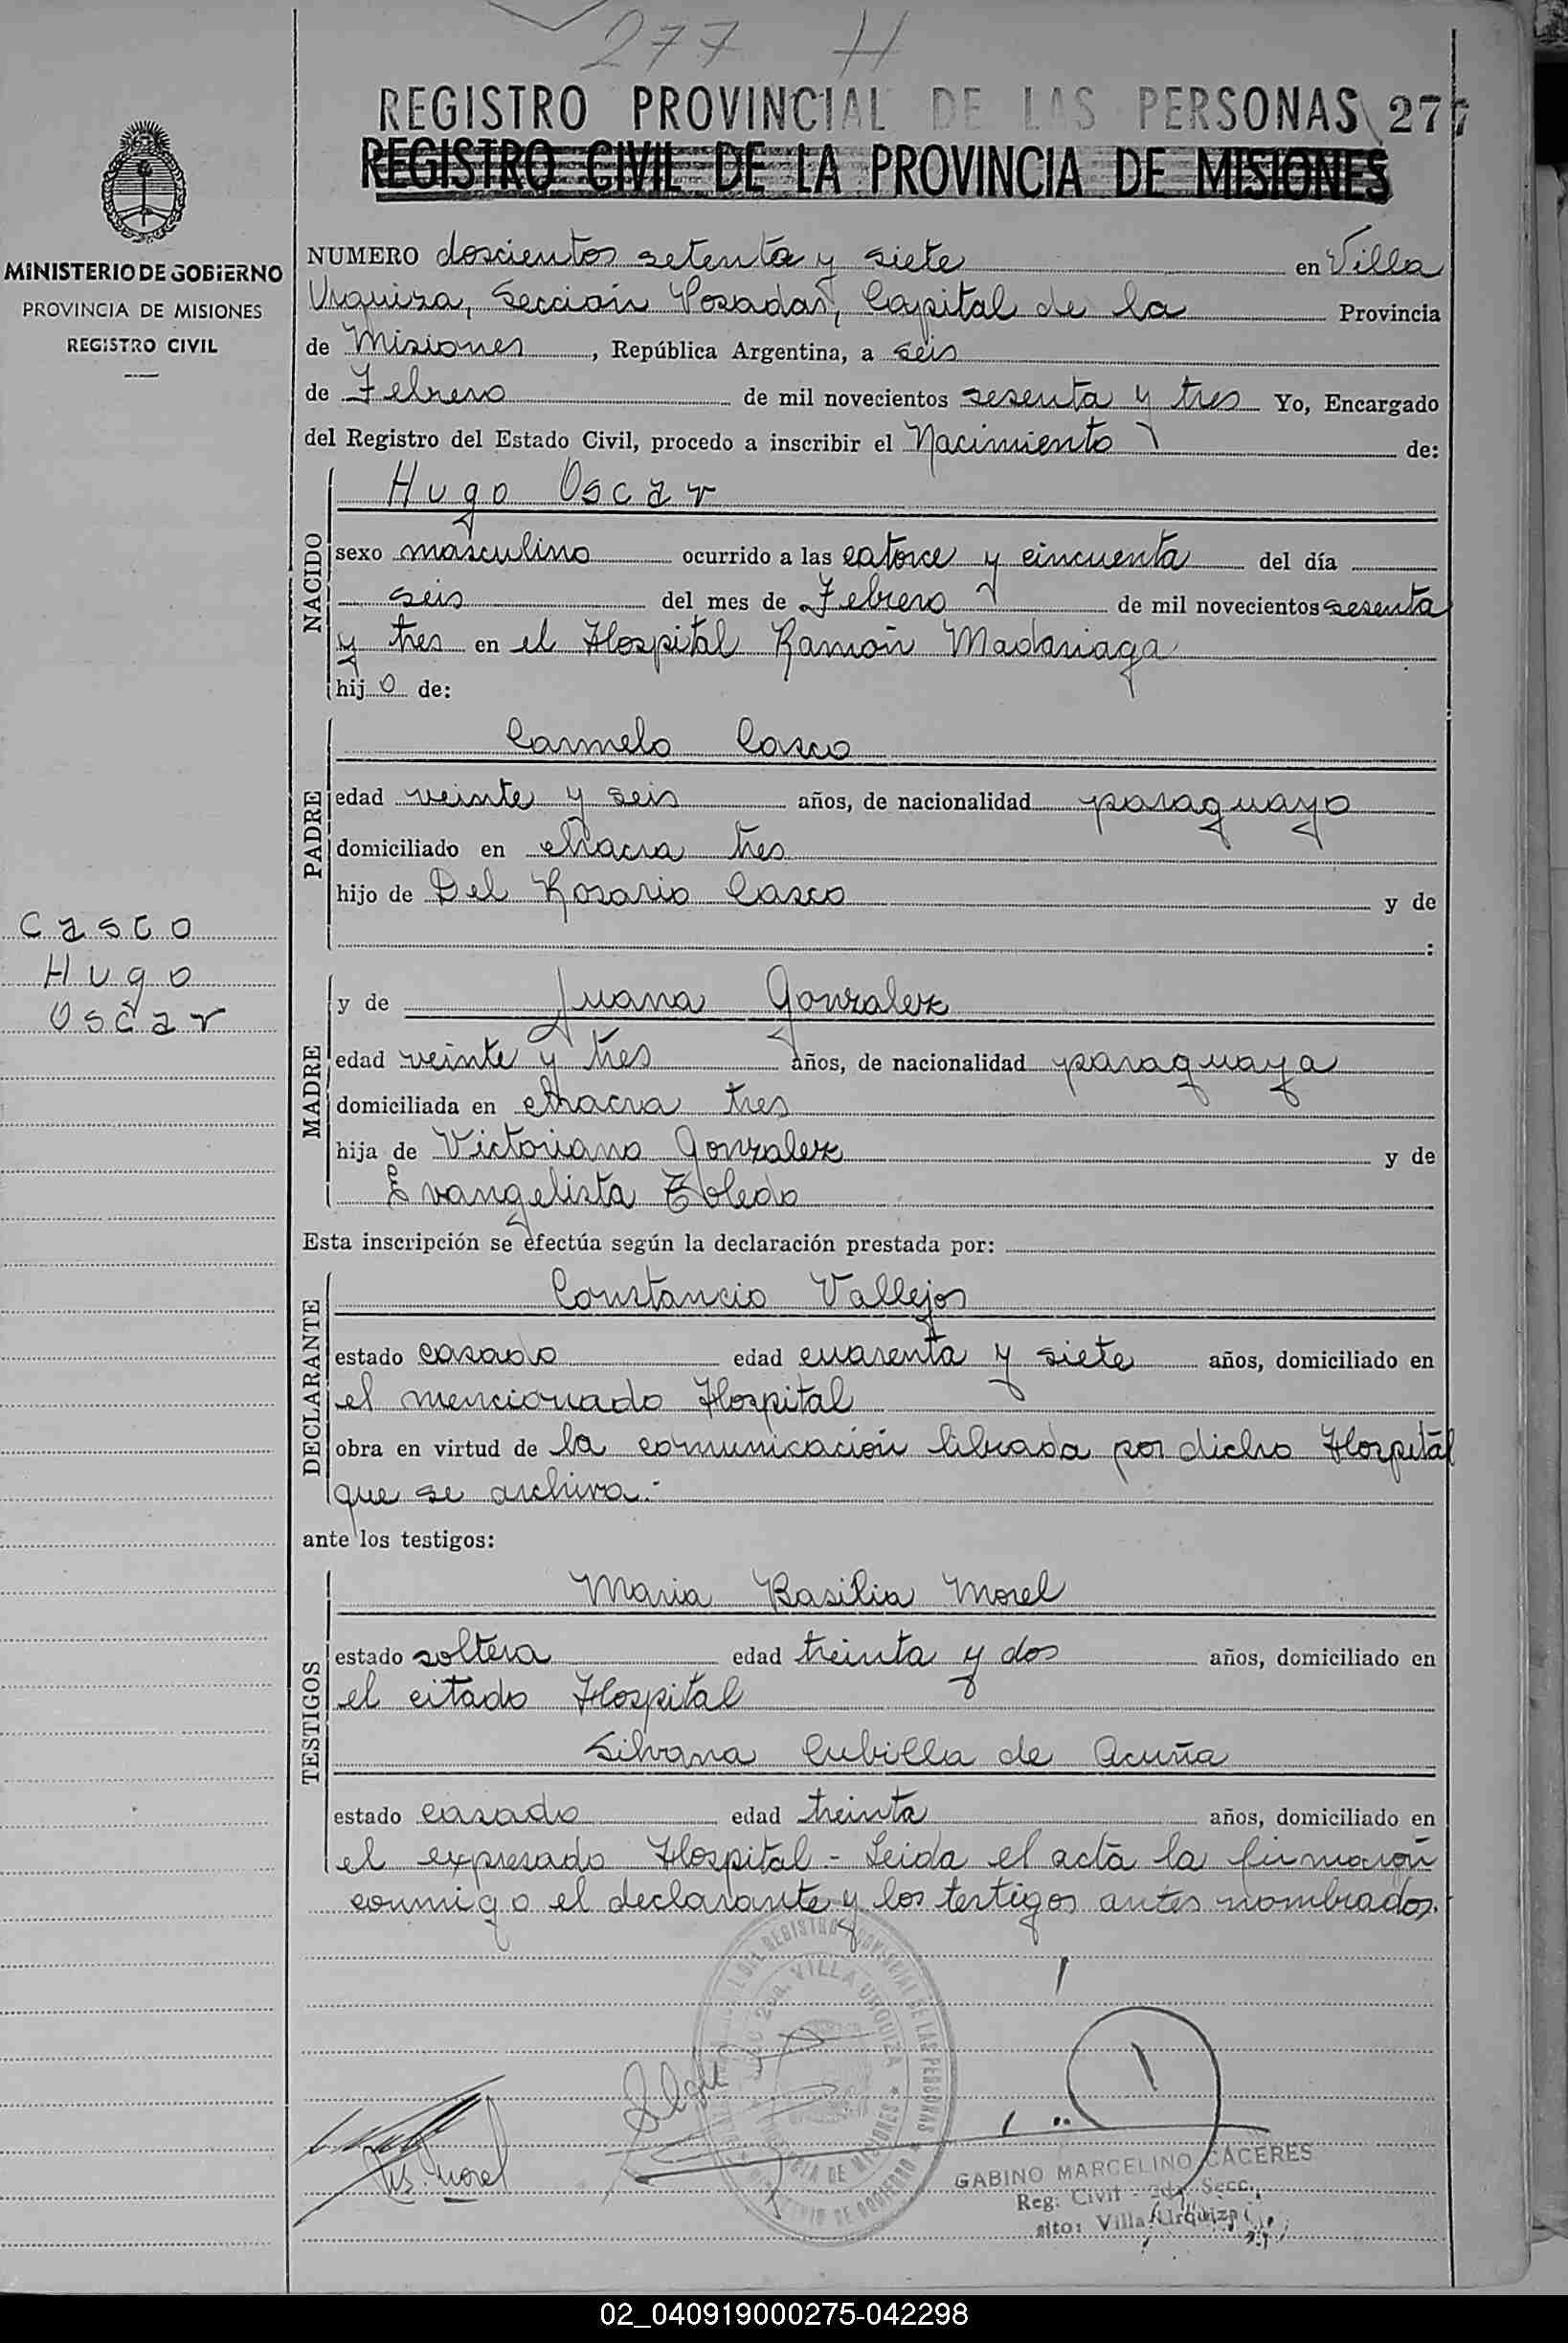 277 H
REGISTRO PROVINCIAL DE LAS PERSONAS 277
REGISTRO CIVIL DE LA PROVINCIA DE MISIONES
MINISTERIO DE GOBIERNO
PROVINCIA DE MISIONES
REGISTRO CIVIL
NUMERO doscientos setenta y siete en Villa
Urquiza, Sección Posadas, Capital de la Provincia
de Misiones, República Argentina, a seis
de Febrero de mil novecientos sesenta y tres Yo, Encargado
del Registro del Estado Civil, procedo a inscribir el Nacimiento de:
NACIDO
Hugo Oscar
sexo masculino ocurrido a las catorce y cincuenta del día
seis del mes de Febrero de mil novecientos sesenta
y tres en el Hospital Ramón Madariaga
hijo de:
PADRE
Carmelo Casco
edad veinte y seis años, de nacionalidad paraguayo
domiciliado en chacra tres
hijo de Del Rosario Casco y de
:
Casco
Hugo
Oscar
MADRE
y de Juana Gonzalez
edad veinte y tres años, de nacionalidad paraguaya
domiciliada en chacra tres
hija de Victoriano Gonzalez y de
Evangelista Toledo
Esta inscripción se efectúa según la declaración prestada por:
DECLARANTE
Constancio Vallejos
estado casado edad cuarenta y siete años, domiciliado en
el mencionado Hospital
obra en virtud de la comunicación librada por dicho Hospital
que se archiva.-
ante los testigos:
TESTIGOS
Maria Basilia Morel
estado soltera edad treinta y dos años, domiciliado en
el citado Hospital
Silvana Cubilla de Acuña
estado casado edad treinta años, domiciliado en
el expresado Hospital.- Leida el acta la firmaron
conmigo el declarante y los testigos antes nombrados.
VILLA URQUIZA
DE LAS PERSONAS
B. Morel
GABINO MARCELINO CACERES
Reg. Civil - 2da. Secc.
sito: Villa Urquiza
02_040919000275-042298